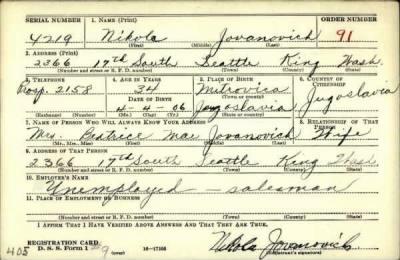 SERIAL NUMBER 1. NAME (Print) ORDER NUMBER
4219 Nikola Jovanovich 91
(First) (Middle) (Last)
2. ADDRESS (Print)
2366 17th South Seattle King Wash.
(Number and street or R. F. D. number) (Town) (County) (State)
3. TELEPHONE 4. AGE IN YEARS 5. PLACE OF BIRTH 6. COUNTRY OF CITIZENSHIP
Prosp. 2158 34 Mitrovica Jugoslavia
DATE OF BIRTH (Town or county)
4-4-06 Jugoslavia
(Exchange) (Number) (Mo.) (Day) (Yr.) (State or country)
7. NAME OF PERSON WHO WILL ALWAYS KNOW YOUR ADDRESS 8. RELATIONSHIP OF THAT PERSON
Mrs. Beatrice Mae Jovanovich Wife
(Mr., Mrs., Miss) (First) (Middle) (Last)
9. ADDRESS OF THAT PERSON
2366 17th South Seattle King Wash
(Number and street or R. F. D. number) (Town) (County) (State)
10. EMPLOYER'S NAME
Unemployed - salesman
11. PLACE OF EMPLOYMENT OR BUSINESS
(Number and street or R. F. D. number) (Town) (County) (State)
I AFFIRM THAT I HAVE VERIFIED ABOVE ANSWERS AND THAT THEY ARE TRUE.
REGISTRATION CARD
D. S. S. Form 1 (over) 16-17105 Nikola Jovanovich
405 (Registrant's signature)